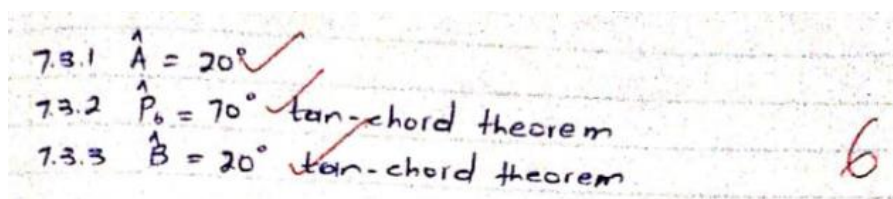 7.3.1 Â = 20°
7.3.2 P̂₆ = 70° tan-chord theorem
7.3.3 B̂ = 20° tan-chord theorem
6